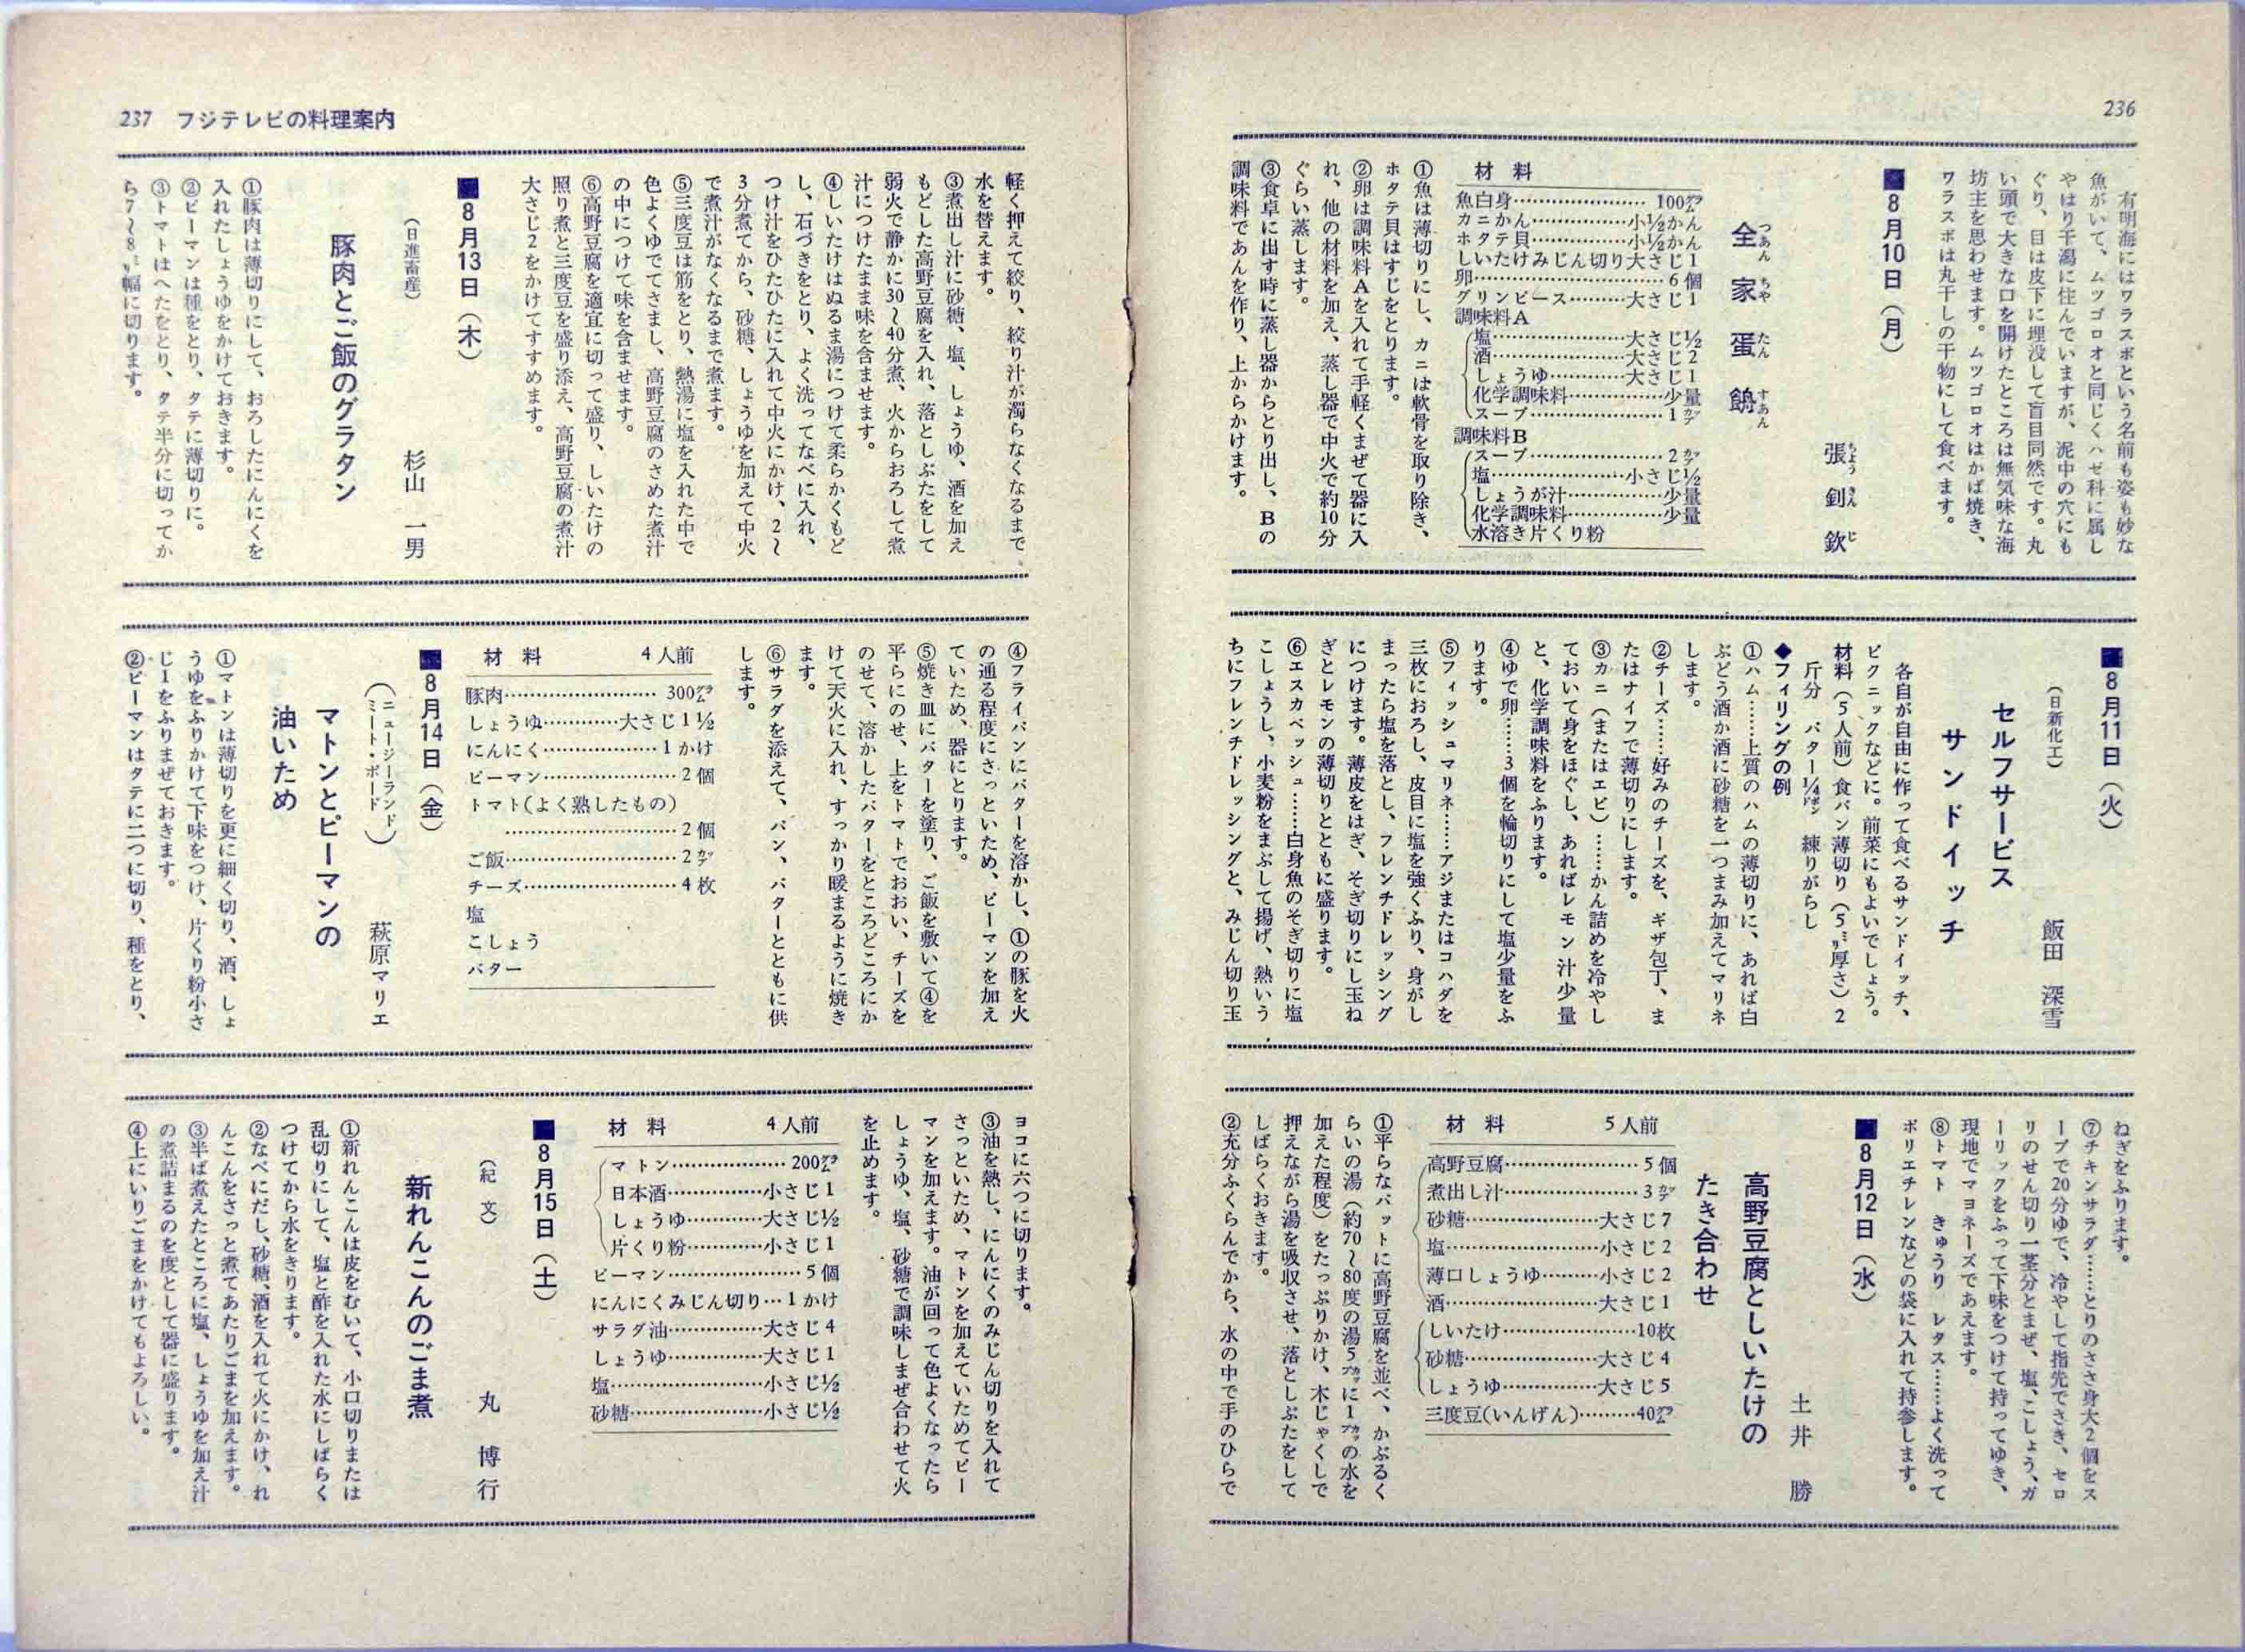 236
有明海にはワラスボという名前も姿も妙な
魚がいて、ムツゴロオと同じくハゼ科に属し
やはり干潟に住んでいますが、泥中の穴にも
ぐり、目は皮下に埋没して盲目同然です。丸
い頭で大きな口を開けたところは無気味な海
坊主を思わせます。ムツゴロオはかば焼き、
ワラスボは丸干しの干物にして食べます。
■8月10日(月)
張釗欽
ちようきんじ
全家蛋餉
つあんちやたんすあん
材料
魚白身………………100㌘
カニかん…………小½かん
ホタテ貝…………小½かん
しいたけみじん切り大さじ1
卵……………………6個
グリンピース………大さじ1
調味料A
塩……………大さじ½
酒……………大さじ2
しょうゆ…………大さじ1
化学調味料…………少量
スープ………………1㌍
調味料B
スープ………………2㌍
塩……………小さじ½
しょうが汁…………少量
化学調味料…………少量
水溶き片くり粉
①魚は薄切りにし、カニは軟骨を取り除き、
ホタテ貝はすじをとります。
②卵は調味料Aを入れて手軽くまぜて器に入
れ、他の材料を加え、蒸し器で中火で約10分
ぐらい蒸します。
③食卓に出す時に蒸し器からとり出し、Bの
調味料であんを作り、上からかけます。
■8月11日(火)
(日新化工)
飯田 深雪
セルフサービス
サンドイッチ
各自が自由に作って食べるサンドイッチ、
ピクニックなどに。前菜にもよいでしょう。
材料(5人前)食パン薄切り(5㍉厚さ)2
斤分 バター¼㍀ 練りがらし
◆フィリングの例
①ハム……上質のハムの薄切りに、あれば白
ぶどう酒か酒に砂糖を一つまみ加えてマリネ
します。
②チーズ……好みのチーズを、ギザ包丁、ま
たはナイフで薄切りにします。
③カニ(またはエビ)……かん詰めを冷やし
ておいて身をほぐし、あればレモン汁少量
と、化学調味料をふります。
④ゆで卵……3個を輪切りにして塩少量をふ
ります。
⑤フィッシュマリネ……アジまたはコハダを
三枚におろし、皮目に塩を強くふり、身がし
まったら塩を落とし、フレンチドレッシング
につけます。薄皮をはぎ、そぎ切りにし玉ね
ぎとレモンの薄切りとともに盛ります。
⑥エスカベッシュ……白身魚のそぎ切りに塩
こしょうし、小麦粉をまぶして揚げ、熱いう
ちにフレンチドレッシングと、みじん切り玉
ねぎをふります。
⑦チキンサラダ……とりのささ身大2個をス
ープで20分ゆで、冷やして指先でさき、セロ
リのせん切り一茎分とまぜ、塩、こしょう、ガ
ーリックをふって下味をつけて持ってゆき、
現地でマヨネーズであえます。
⑧トマト きゅうり レタス……よく洗って
ポリエチレンなどの袋に入れて持参します。
■8月12日(水)
土井 勝
高野豆腐としいたけの
たき合わせ
材料 5人前
高野豆腐………………5個
煮出し汁………………3㌍
砂糖……………大さじ7
塩………………小さじ2
薄口しょうゆ………小さじ2
酒………………大さじ1
しいたけ………………10枚
砂糖……………大さじ4
しょうゆ…………大さじ5
三度豆(いんげん)………40㌘
①平らなバットに高野豆腐を並べ、かぶるく
らいの湯(約70~80度の湯5㌍に1㌍の水を
加えた程度)をたっぷりかけ、木じゃくしで
押えながら湯を吸収させ、落としぶたをして
しばらくおきます。
②充分ふくらんでから、水の中で手のひらで
237 フジテレビの料理案内
軽く押えて絞り、絞り汁が濁らなくなるまで
水を替えます。
③煮出し汁に砂糖、塩、しょうゆ、酒を加え
もどした高野豆腐を入れ、落としぶたをして
弱火で静かに30~40分煮、火からおろして煮
汁につけたまま味を含ませます。
④しいたけはぬるま湯につけて柔らかくもど
し、石づきをとり、よく洗ってなべに入れ、
つけ汁をひたひたに入れて中火にかけ、2~
3分煮てから、砂糖、しょうゆを加えて中火
で煮汁がなくなるまで煮ます。
⑤三度豆は筋をとり、熱湯に塩を入れた中で
色よくゆでてさまし、高野豆腐のさめた煮汁
の中につけて味を含ませます。
⑥高野豆腐を適宜に切って盛り、しいたけの
照り煮と三度豆を盛り添え、高野豆腐の煮汁
大さじ2をかけてすすめます。
■8月13日(木)
(日進畜産)
杉山 一男
豚肉とご飯のグラタン
①豚肉は薄切りにして、おろしたにんにくを
入れたしょうゆをかけておきます。
②ピーマンは種をとり、タテに薄切りに。
③トマトはへたをとり、タテ半分に切ってか
ら7~8㍉幅に切ります。
④フライパンにバターを溶かし、①の豚を火
の通る程度にさっといため、ピーマンを加え
ていため、器にとります。
⑤焼き皿にバターを塗り、ご飯を敷いて④を
平らにのせ、上をトマトでおおい、チーズを
のせて、溶かしたバターをところどころにか
けて天火に入れ、すっかり暖まるように焼き
ます。
⑥サラダを添えて、パン、バターとともに供
します。
材料 4人前
豚肉………………300㌘
しょうゆ…………大さじ1½
にんにく………………1かけ
ピーマン………………2個
トマト(よく熟したもの)
………………2個
ご飯………………2㌍
チーズ………………4枚
塩
こしょう
バター
■8月14日(金)
(ニュージーランド
ミート・ボード)
萩原マリエ
マトンとピーマンの
油いため
①マトンは薄切りを更に細く切り、酒、しょ
うゆをふりかけて下味をつけ、片くり粉小さ
じ1をふりまぜておきます。
②ピーマンはタテに二つに切り、種をとり、
ヨコに六つに切ります。
③油を熱し、にんにくのみじん切りを入れて
さっといため、マトンを加えていためてピー
マンを加えます。油が回って色よくなったら
しょうゆ、塩、砂糖で調味しまぜ合わせて火
を止めます。
材料 4人前
マトン………………200㌘
日本酒…………小さじ1
しょうゆ…………大さじ½
片くり粉…………小さじ1
ピーマン………………5個
にんにくみじん切り…1かけ
サラダ油…………大さじ4
しょうゆ…………大さじ1
塩………………小さじ½
砂糖……………小さじ½
■8月15日(土)
(紀文)
丸 博行
新れんこんのごま煮
①新れんこんは皮をむいて、小口切りまたは
乱切りにして、塩と酢を入れた水にしばらく
つけてから水をきります。
②なべにだし、砂糖、酒を入れて火にかけ、れ
んこんをさっと煮てあたりごまを加えます。
③半ば煮えたところに塩、しょうゆを加え汁
の煮詰まるのを度として器に盛ります。
④上にいりごまをかけてもよろしい。